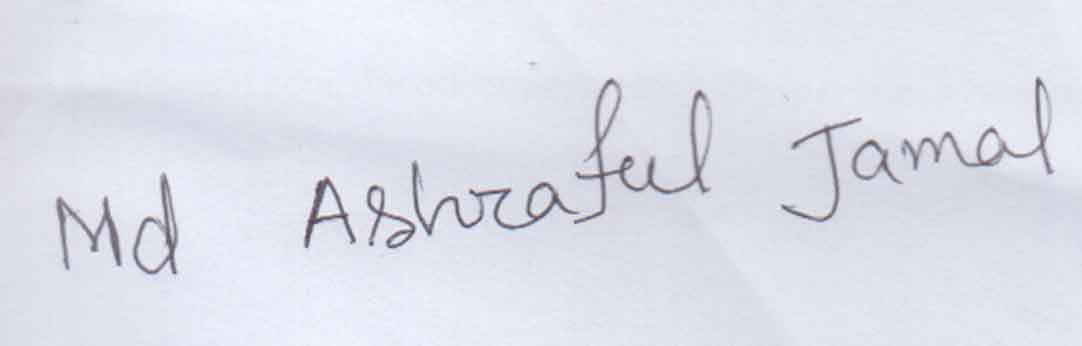 Md Ashraful Jamal